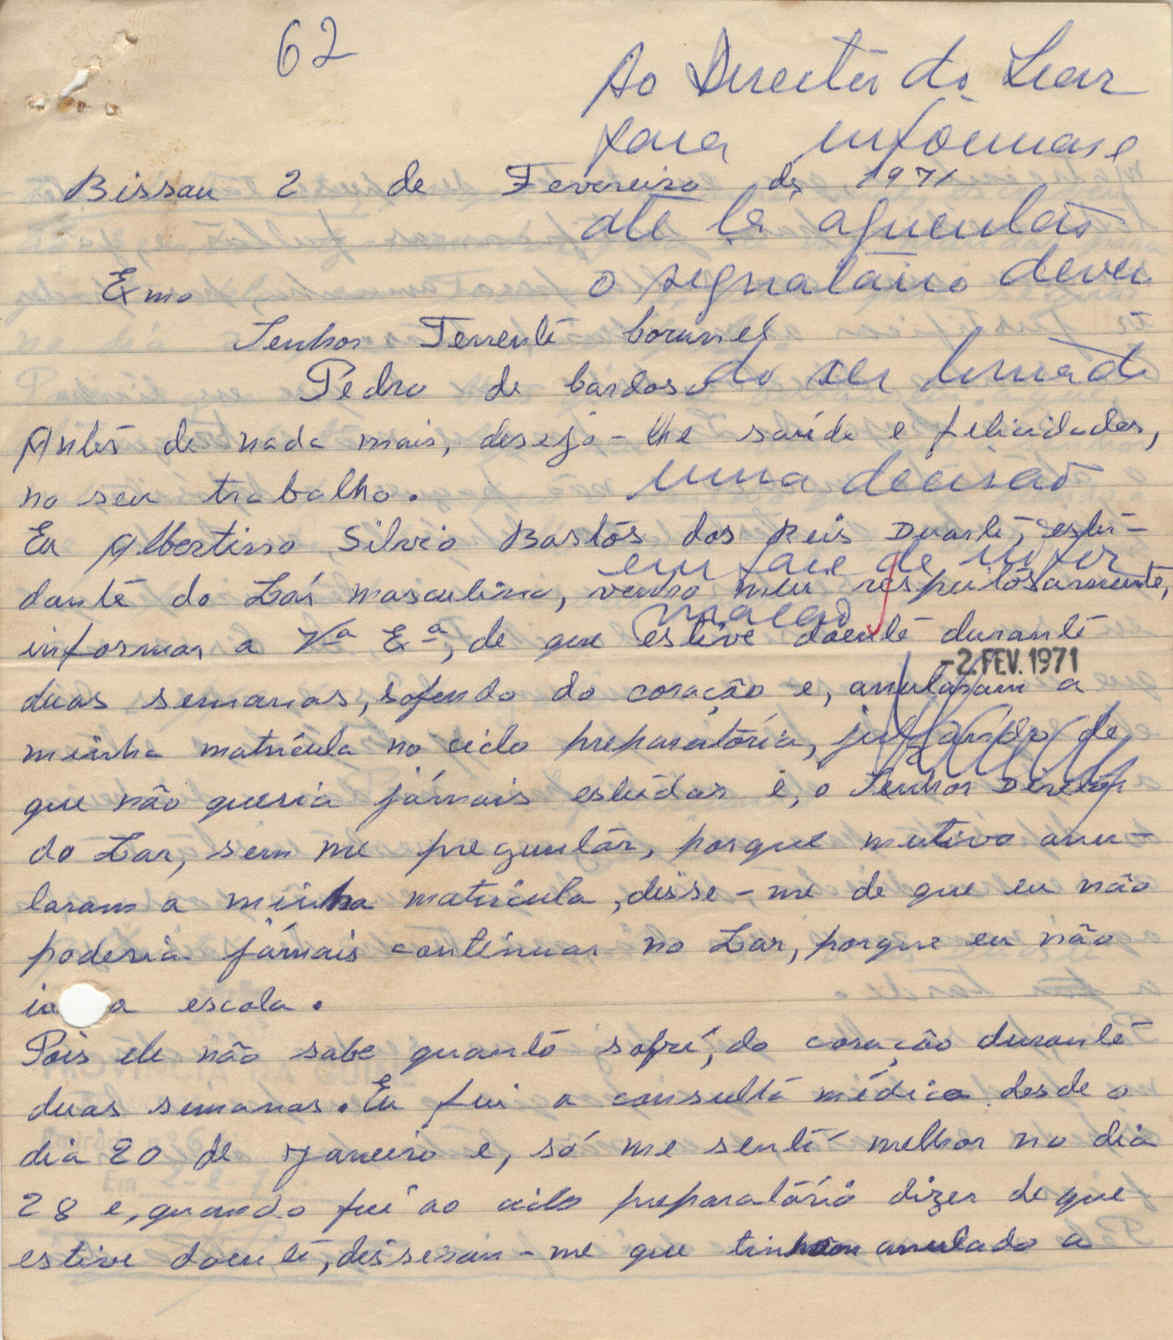 62
Ao Director do Lar
para informar
Bissau 2 de Fevereiro de 1971
até lá aguardar
o signatário deven
Exmo
Senhor Tenente Coronel
Pedro de Cardoso
do ser tomada
Antes de nada mais, desejo-lhe saúde e felicidades,
uma decisão
no seu trabalho.
Eu Albertino Silvio Bastos dos Reis Duarte, estu-
em face de infor
dante do Lar masculino, venho mui respeitosamente,
mação
informar a Vª Eª, de que estive doente durante
-2.FEV.1971
duas semanas, sofrendo do coração e, anularam a
minha matrícula no ciclo preparatório, julgando de
que não queria jámais estudar e, o Senhor Director
do Lar, sem me preguntar, porque motivo anu-
laram a minha matrícula, disse-me de que eu não
poderia jámais continuar no Lar, porque eu não
ia a escola.
Pois ele não sabe quanto sofri, do coração durante
duas semanas. Eu fui a consulta médica desde o
dia 20 de Janeiro e, só me senti melhor no dia
28 e, quando fui ao ciclo preparatório dizer de que
estive doente, disseram-me que tinham anulado a